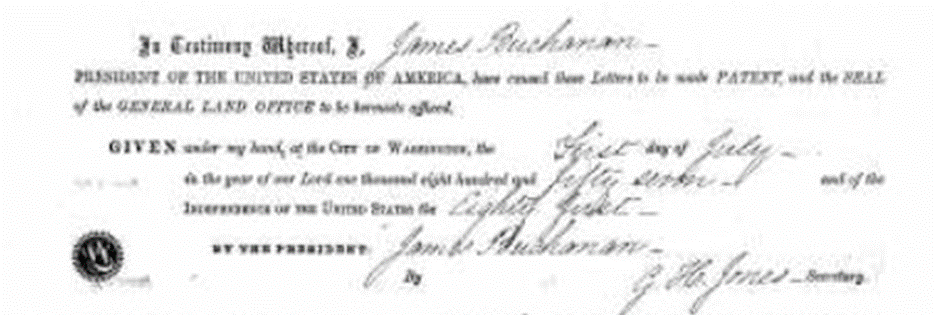 In Testimony Whereof, I, James Buchanan
PRESIDENT OF THE UNITED STATES OF AMERICA, have caused these Letters to be made PATENT, and the SEAL
of the GENERAL LAND OFFICE to be hereunto affixed.
GIVEN under my hand, at the CITY OF WASHINGTON, the First day of July
in the year of our Lord one thousand eight hundred and fifty seven and of the
INDEPENDENCE OF THE UNITED STATES the Eighty first
BY THE PRESIDENT: James Buchanan
By G. H. Jones Secretary.